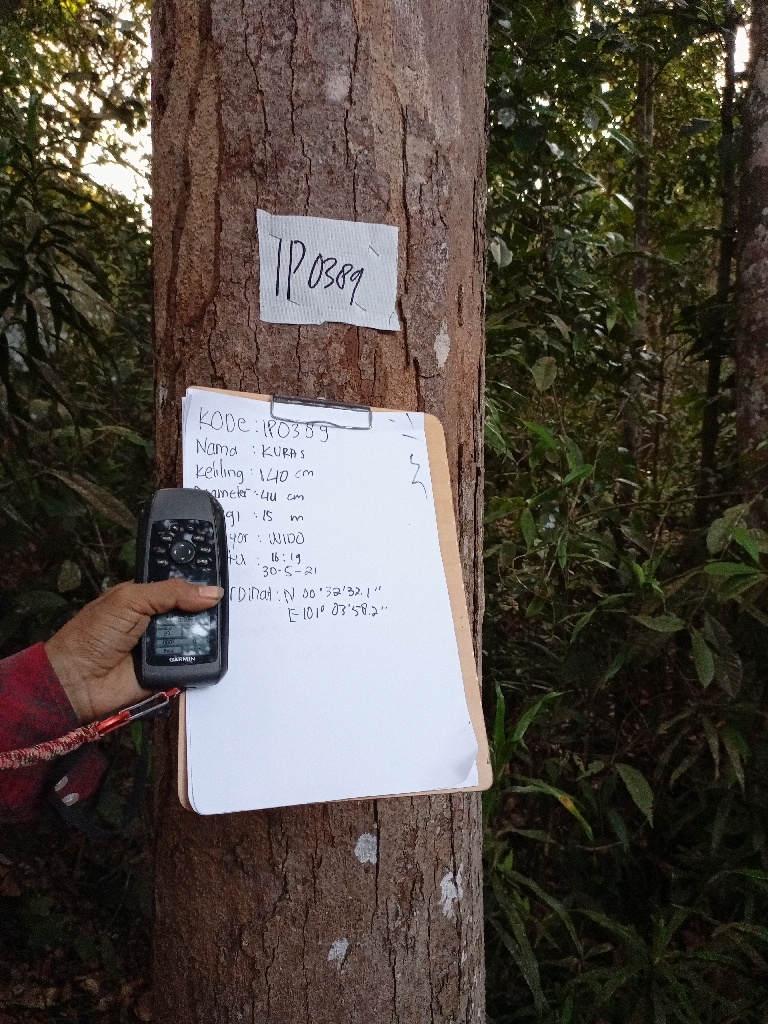 IP0389
KODE : IP0389
Nama : KURAS
Keliling : 140 cm
Diameter : 44 cm
gi : 15 m
yor : WIDO
tu : 16:19
30-5-21
rdinat : N 00°32'32.1"
E 101° 03'58.2"
GARMIN